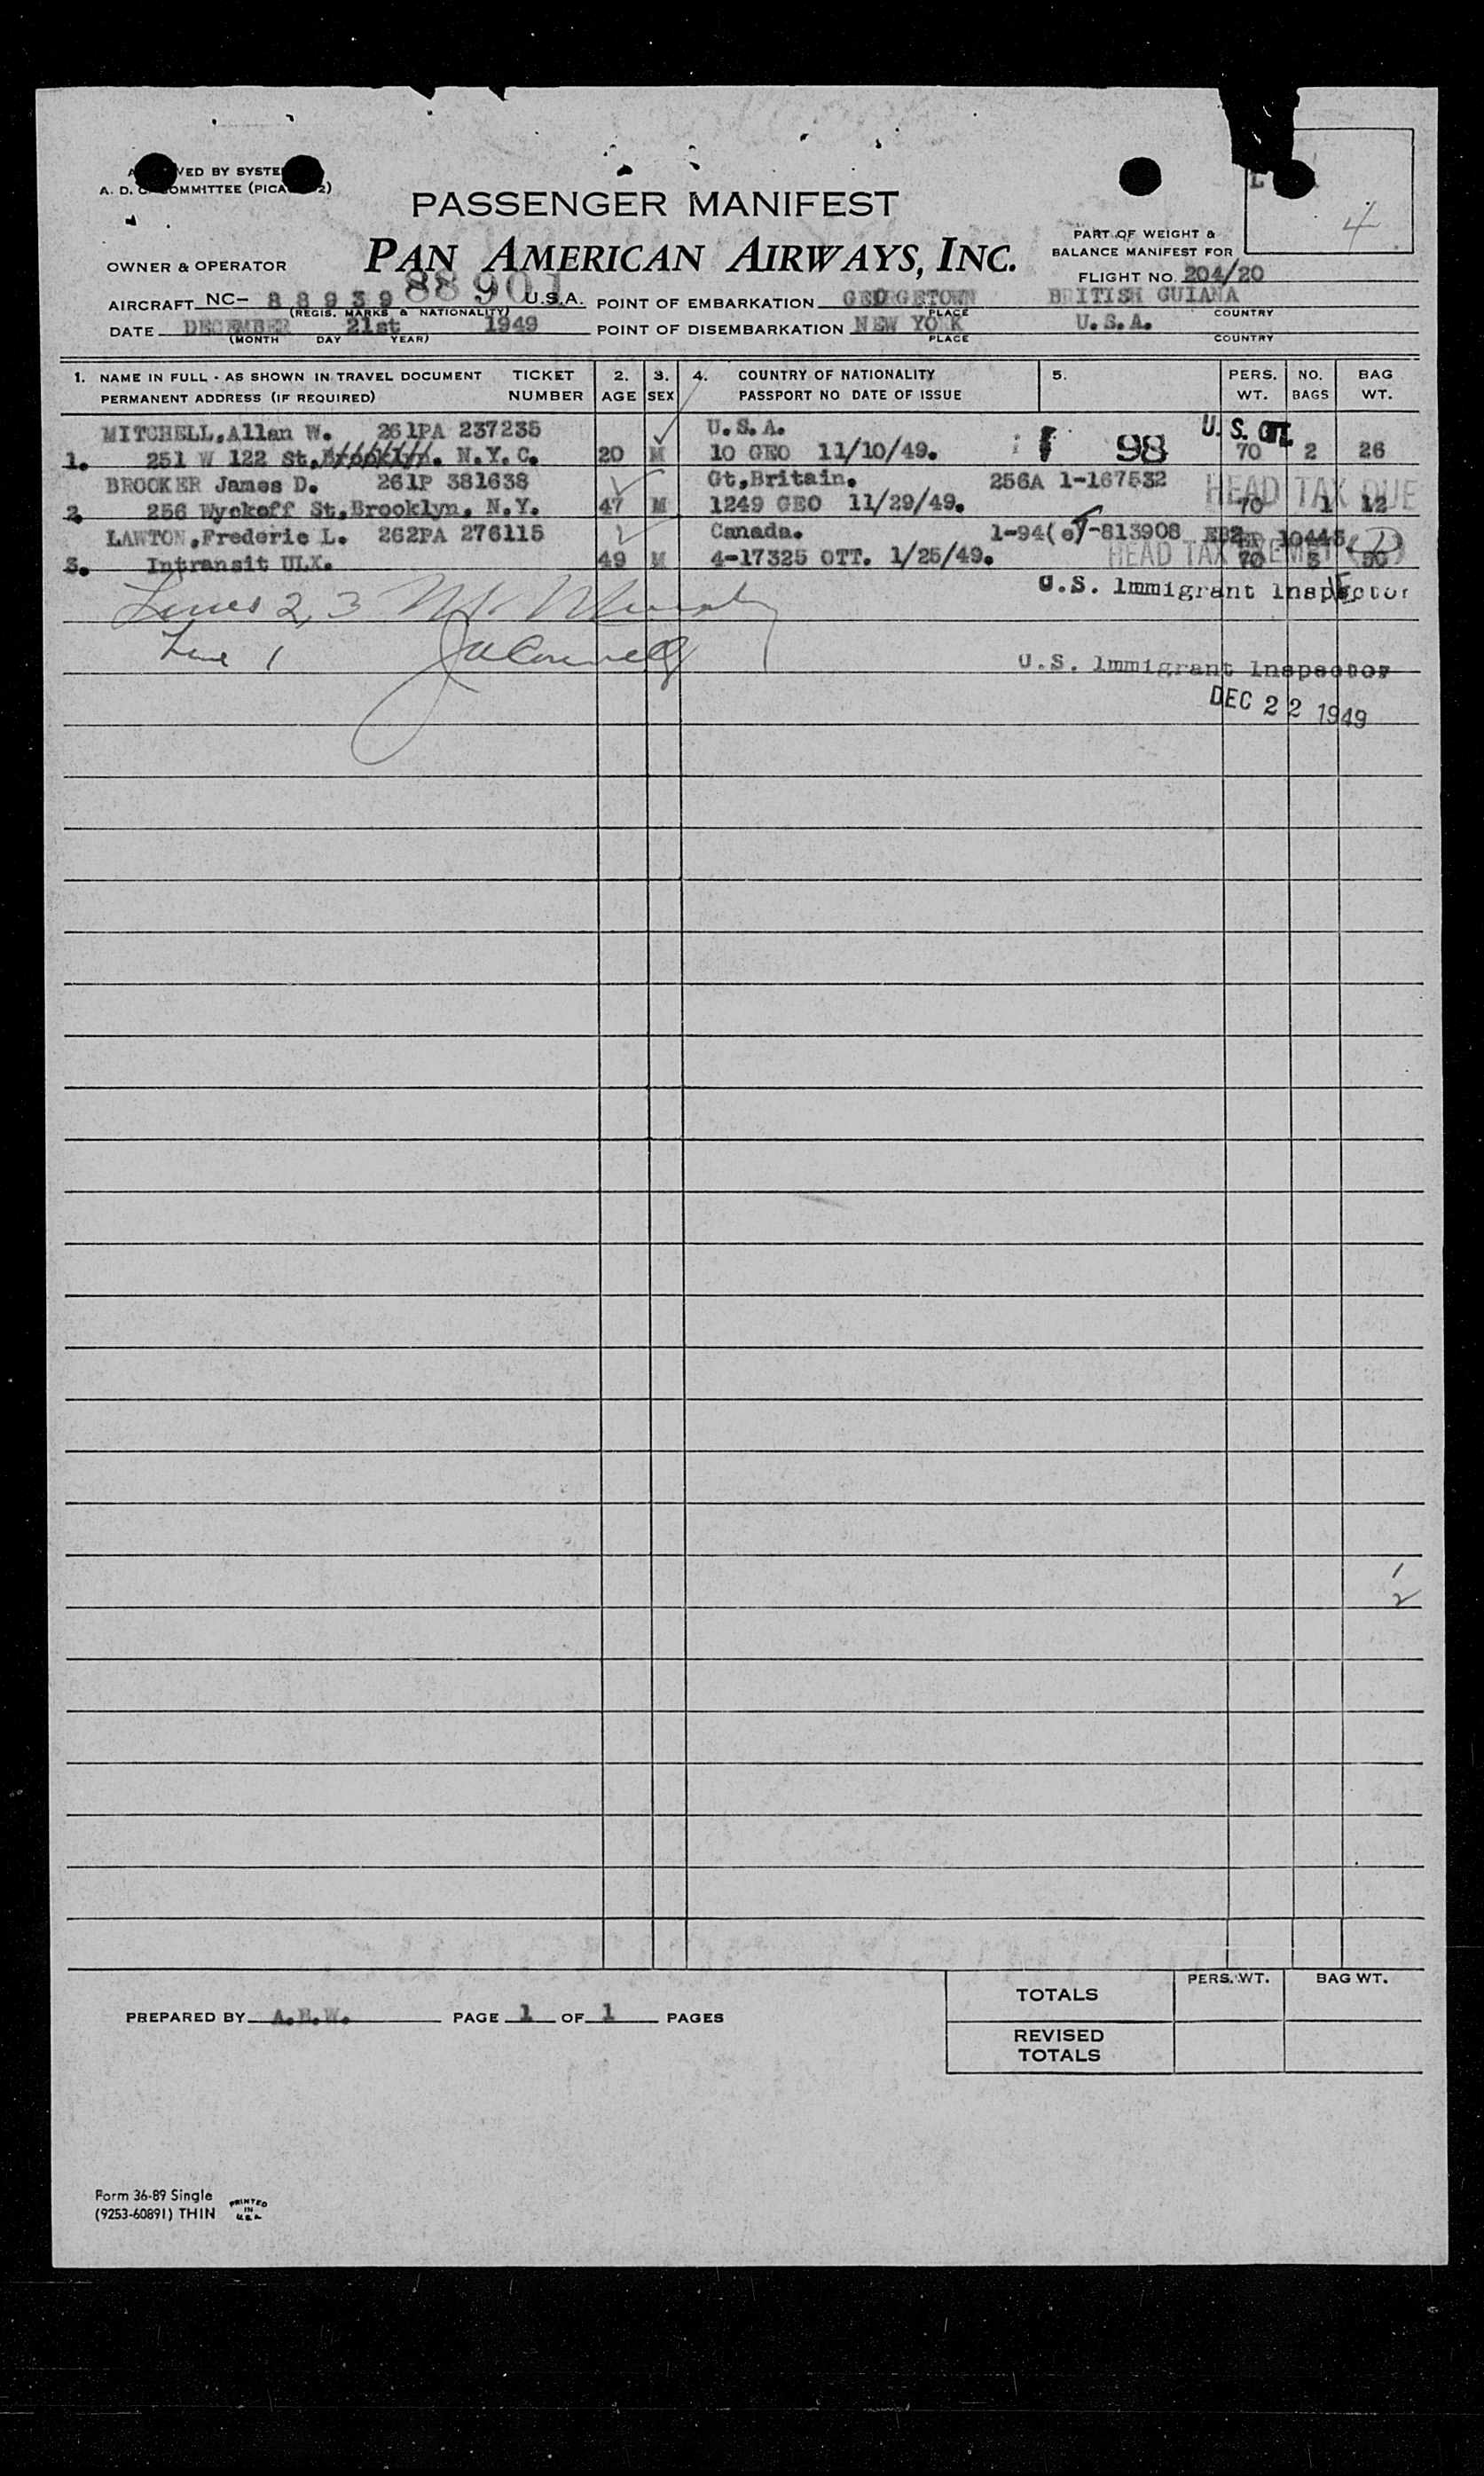 VED BY SYSTE
A. D. C. COMMITTEE (PICA 2)
4
PASSENGER MANIFEST
PART OF WEIGHT &
BALANCE MANIFEST FOR
OWNER & OPERATOR
PAN AMERICAN AIRWAYS, INC.
FLIGHT NO. 204/20
AIRCRAFT NC- 88939 88901 U.S.A. POINT OF EMBARKATION GEORGETOWN BRITISH GUIANA
(REGIS. MARKS & NATIONALITY) PLACE COUNTRY
DATE DECEMBER 21st 1949 POINT OF DISEMBARKATION NEW YORK U.S.A.
(MONTH DAY YEAR) PLACE COUNTRY
1. NAME IN FULL - AS SHOWN IN TRAVEL DOCUMENT TICKET 2. 3. 4. COUNTRY OF NATIONALITY 5. PERS. NO. BAG
PERMANENT ADDRESS (IF REQUIRED) NUMBER AGE SEX PASSPORT NO DATE OF ISSUE WT. BAGS WT.
MITCHELL,Allan W. 261PA 237235 U.S.A. U.S. CIT.
1. 251 W 122 St.Brooklyn. N.Y.C. 20 M 10 GEO 11/10/49. 98 70 2 26
BROOKER James D. 261P 381638 Gt,Britain. 256A 1-167532 HEAD TAX DUE
2. 256 Wyckoff St.Brooklyn. N.Y. 47 M 1249 GEO 11/29/49. 70 1 12
LAWTON,Frederic L. 262PA 276115 Canada. 1-94(e)-813908 10445
3. Intransit ULX. 49 M 4-17325 OTT. 1/25/49. HEAD TAX EXEMPT 70 3 50
U.S. Immigrant Inspector
Lines 2, 3
Line 1
U.S. Immigrant Inspector
DEC 22 1949
1
2
PERS. WT. BAG WT.
TOTALS
PREPARED BY A.B.W. PAGE 1 OF 1 PAGES
REVISED
TOTALS
Form 36-89 Single
(9253-60891) THIN
PRINTED
IN
U.S.A.